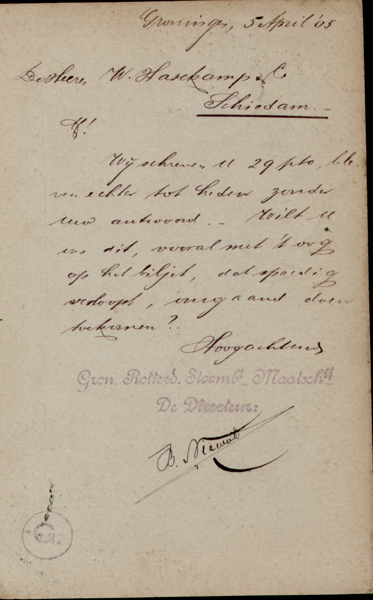 Groningen, 5 April '05
De Heeren W. Haselkamp & Co
Schiedam.-
M!
Wij schreven U 29 pto, ble-
ven echter tot heden zonder
Uw antwoord. - Wilt U
ons dit, vooral met 't oog
op het biljet, dat spoedig
verloopt, omgaand doen
toekomen?
Hoogachtend
Gron. Rotterd. Stoombt Maatschij
De Directeur:
B.